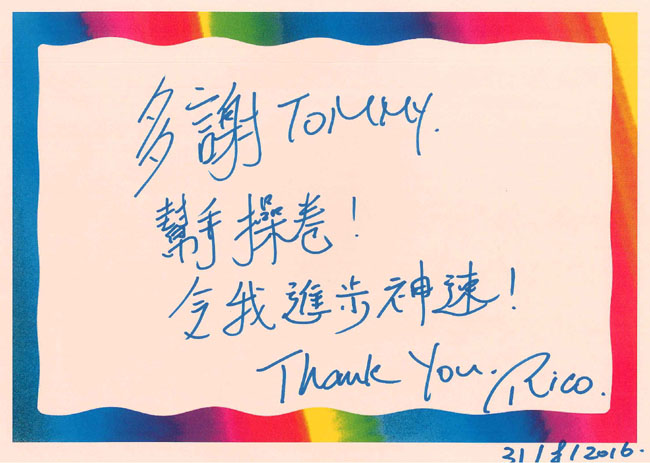 多謝 TOMMY.
幫手操卷!
令我進步神速!
Thank You. Rico.
31/8/2016.